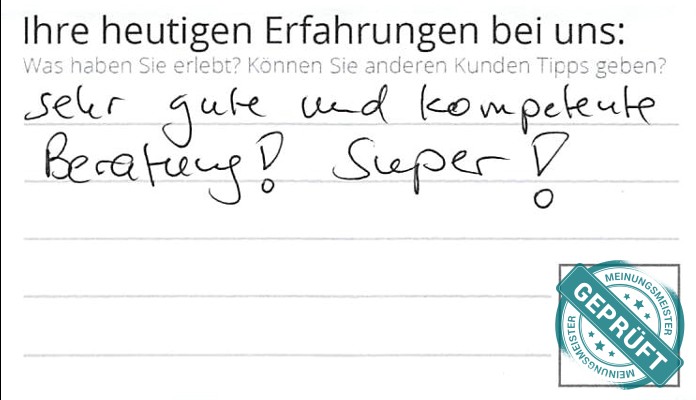 Ihre heutigen Erfahrungen bei uns:
Was haben Sie erlebt? Können Sie anderen Kunden Tipps geben?
sehr gute und kompetente
Beratung! Super!
MEINUNGSMEISTER
GEPRÜFT
MEINUNGSMEISTER
MEINUNGSMEISTER